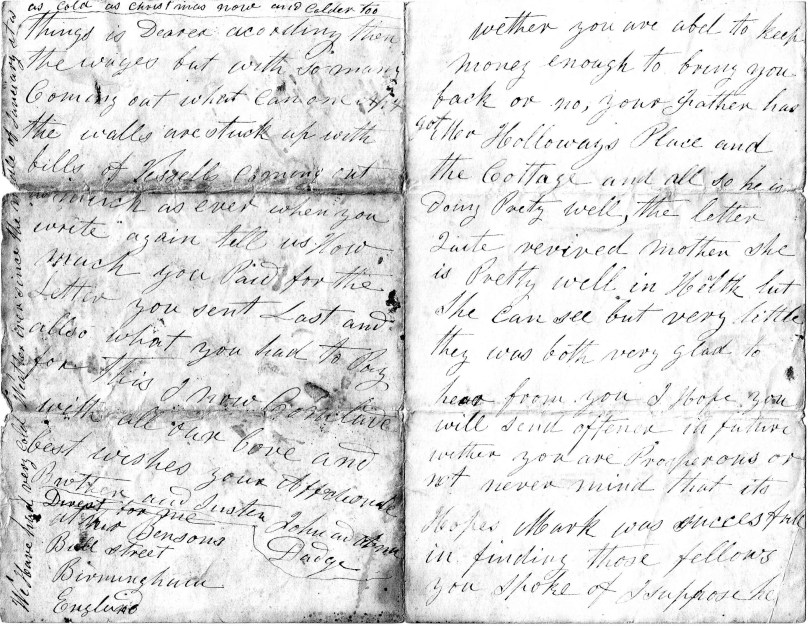 as cold as christmas now and Colder too
things is Dearer acording then
the wages but with so many
Coming out what can one
the walls are stuck up with
bills of Vessells coming out
as much as ever when you
write again tell us How
much you Paid for the
Letter you sent Last and
allso what you had to Pay
for this I now Conclude
with all our Love and
best wishes your Affectionate
Brother and Sister
John and
Dadge
Direct for me
at Mr Bensons
Bull street
Birmingham
England
We have had very cold Weather ever since the of January it is
wether you are abel to keep
money enough to bring you
back or no, your father has
got Mr Holloways Place and
the Cottage and all so he is
Doing Prety well, the letter
Quite revived mother she
is Pretty well in Helth but
She can see but very little
they was both very glad to
hear from you I Hope you
will send oftener in future
wither you are Prosperous or
not never mind that its
Hopes Mark was succesfull
in finding those fellows
you spoke of I suppose he